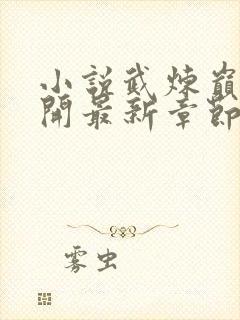 小說武煉巔
開最新章節
雾虫